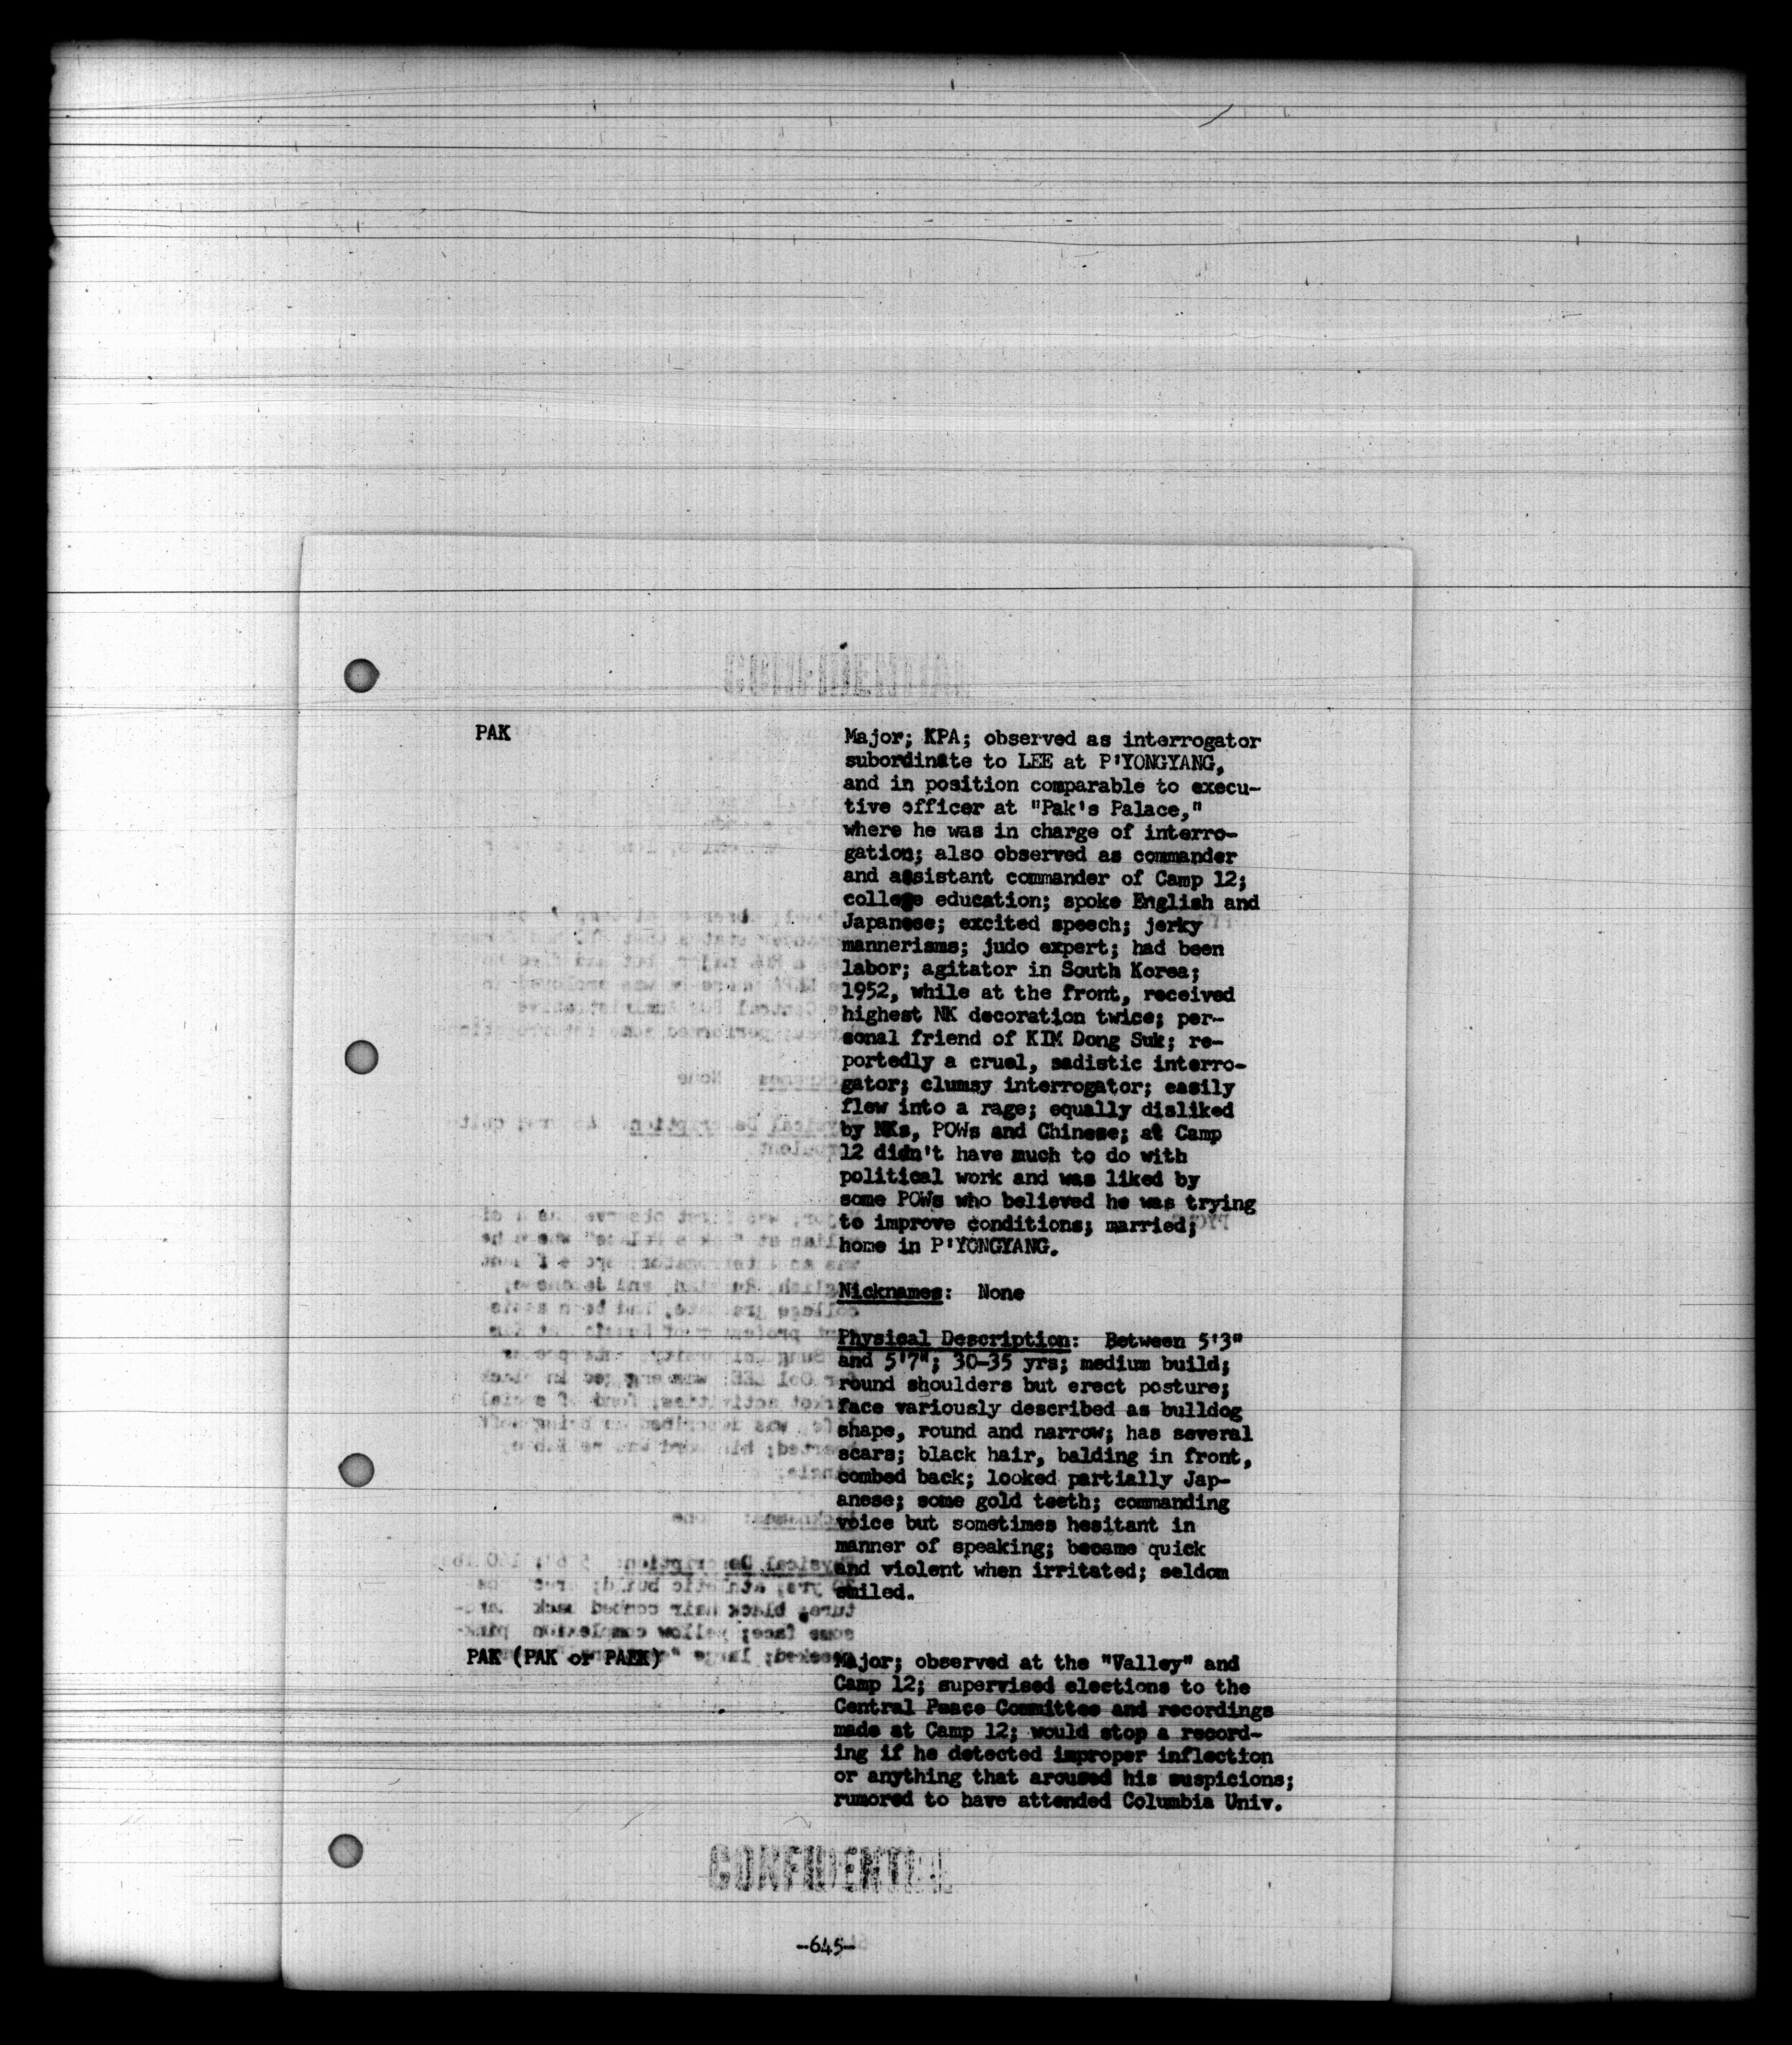 CONFIDENTIAL
PAK
Major; KPA; observed as interrogator
subordinate to LEE at P'YONGYANG,
and in position comparable to execu-
tive officer at "Pak's Palace,"
where he was in charge of interro-
gation; also observed as commander
and assistant commander of Camp 12;
college education; spoke English and
Japanese; excited speech; jerky
mannerisms; judo expert; had been
labor; agitator in South Korea;
1952, while at the front, received
highest NK decoration twice; per-
sonal friend of KIM Dong Suk; re-
portedly a cruel, sadistic interro-
gator; clumsy interrogator; easily
flew into a rage; equally disliked
by NKs, POWs and Chinese; at Camp
12 didn't have much to do with
political work and was liked by
some POWs who believed he was trying
to improve conditions; married;
home in P'YONGYANG.
Nicknames: None
Physical Description: Between 5'3"
and 5'7"; 30-35 yrs; medium build;
round shoulders but erect posture;
face variously described as bulldog
shape, round and narrow; has several
scars; black hair, balding in front,
combed back; looked partially Jap-
anese; some gold teeth; commanding
voice but sometimes hesitant in
manner of speaking; became quick
and violent when irritated; seldom
smiled.
PAK (PAK or PAEK)
Major; observed at the "Valley" and
Camp 12; supervised elections to the
Central Peace Committee and recordings
made at Camp 12; would stop a record-
ing if he detected improper inflection
or anything that aroused his suspicions;
rumored to have attended Columbia Univ.
CONFIDENTIAL
-645-